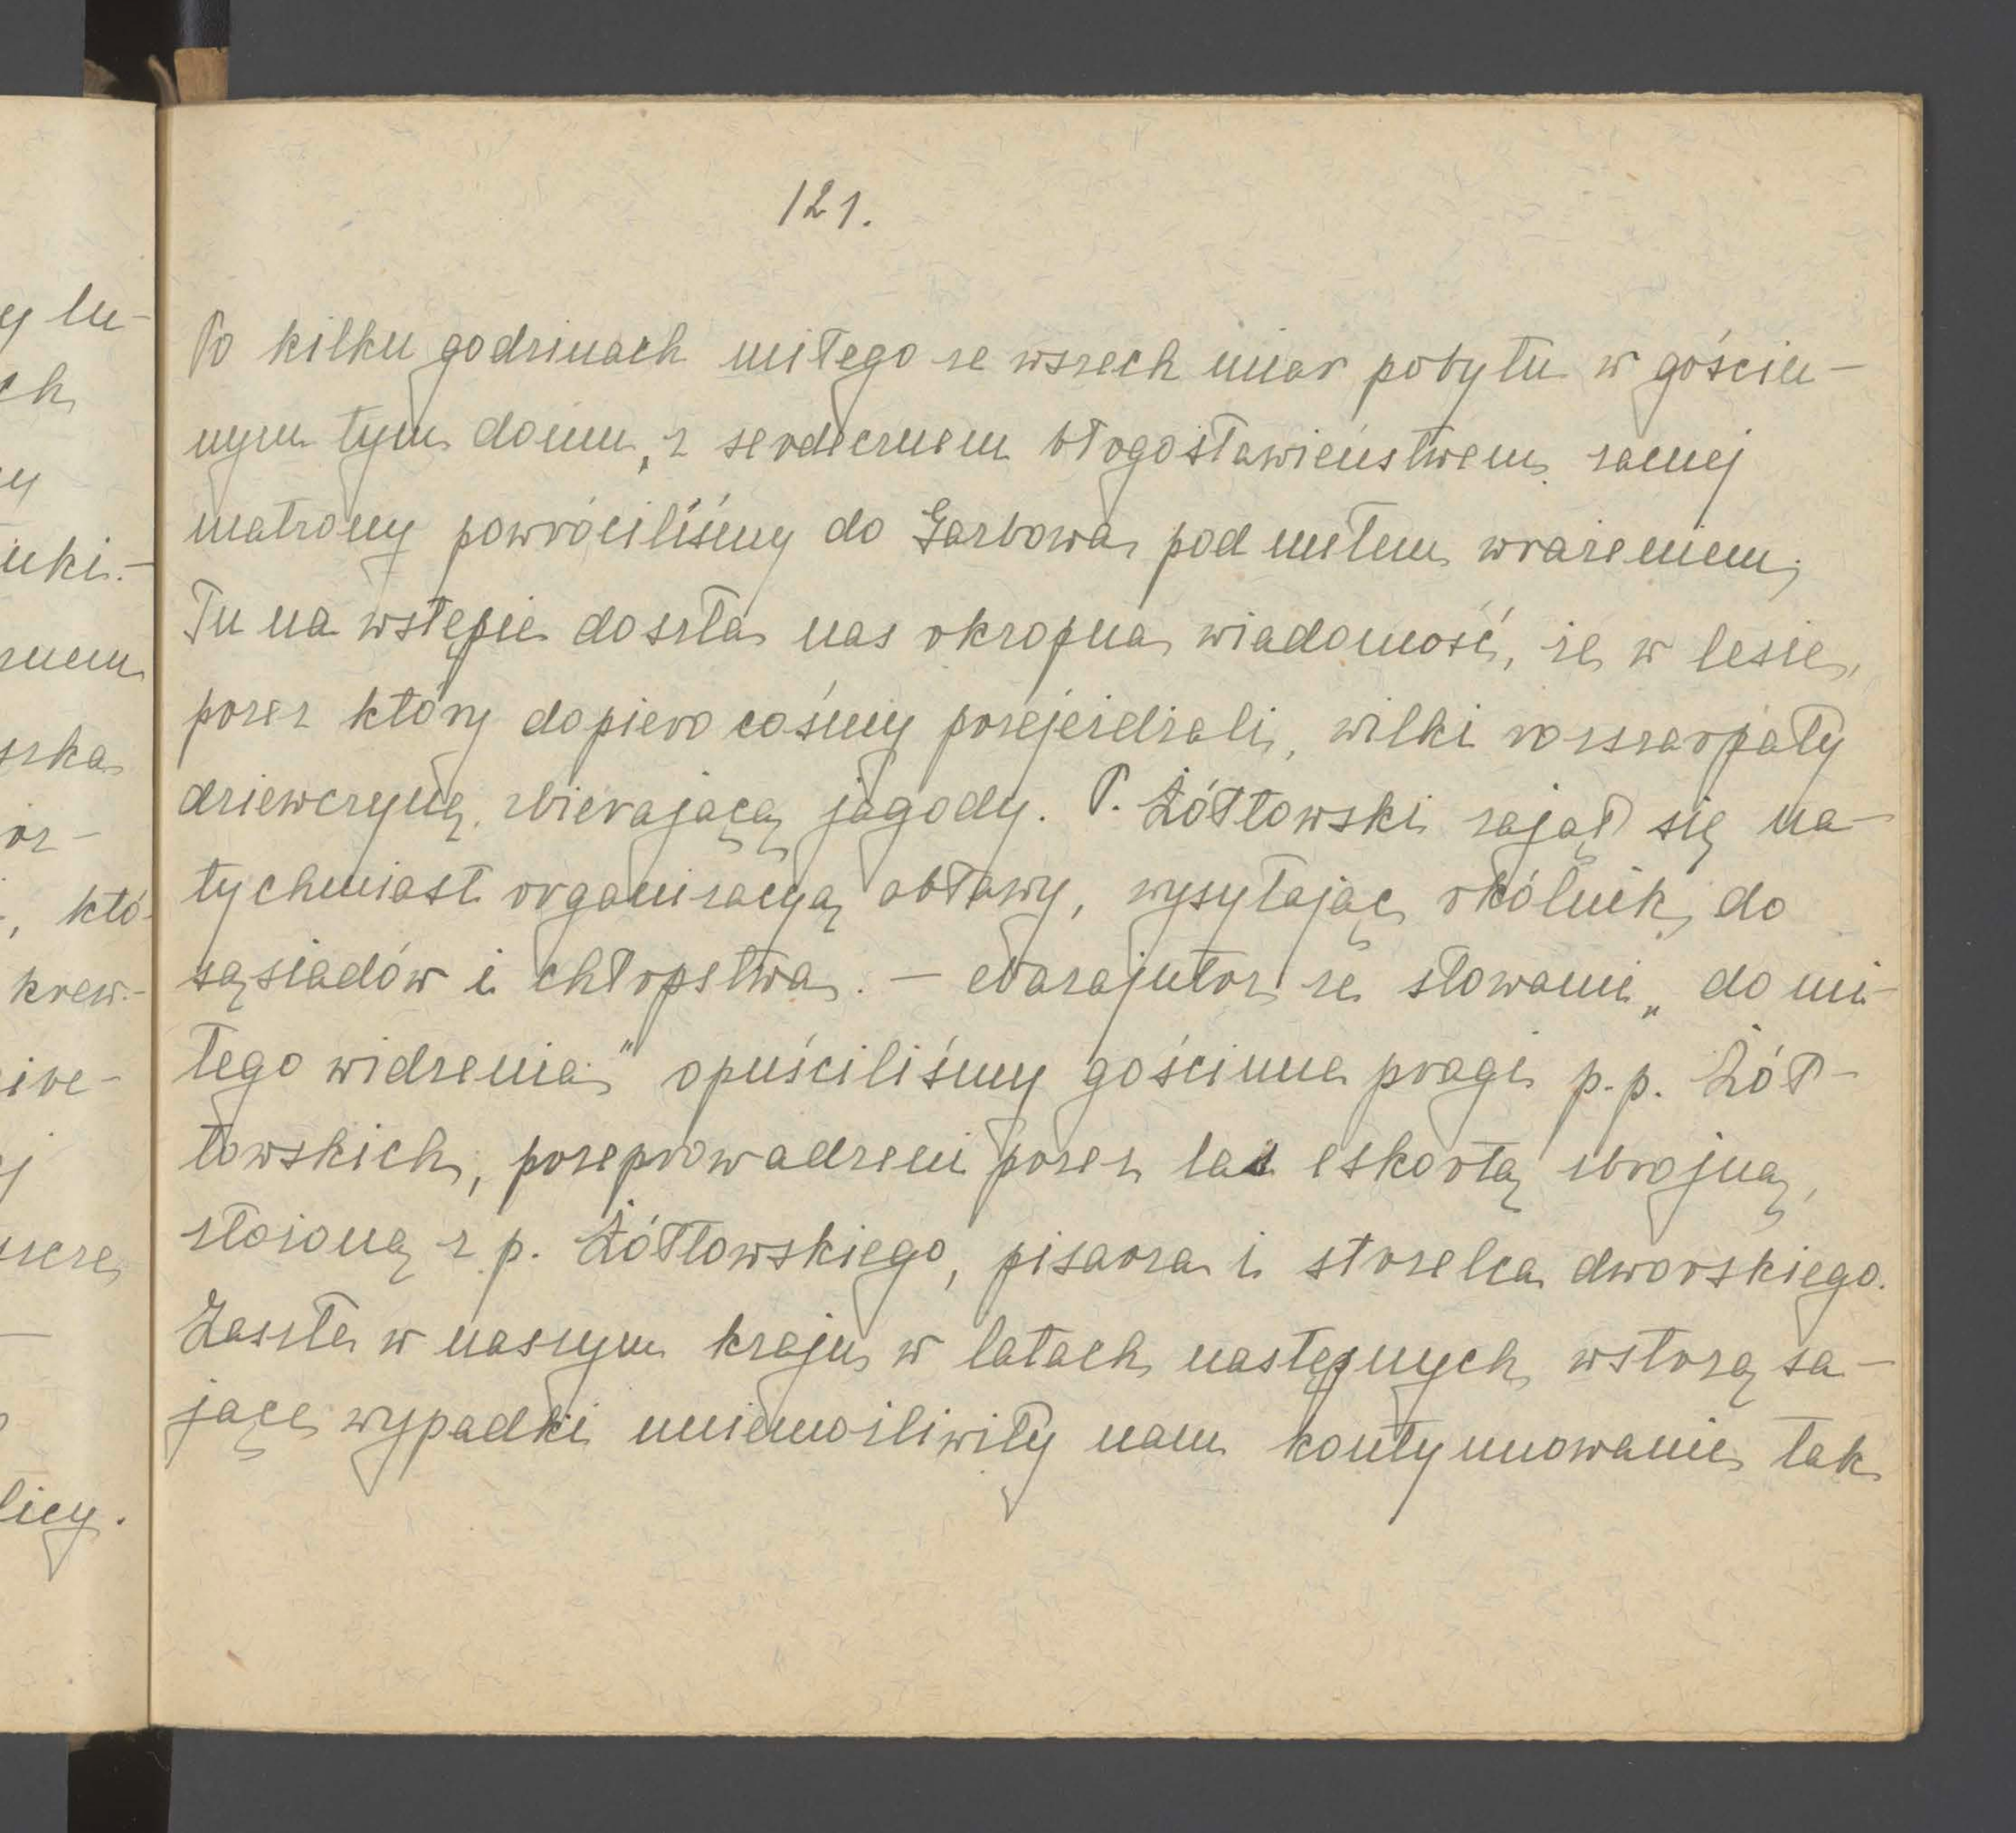 121.
Po kilku godzinach miłego ze wszech miar pobytu w gościn-
nym tym domu, z serdecznem błogosławieństwem zacnej
matrony powróciliśmy do Garbowa pod miłem wrażeniem,
Tu na wstępie doszła nas okropna wiadomość, że w lesie,
przez który dopiero cośmy przejeżdżali, wilki rozszarpały
dziewczynę zbierającą jagody. P. Żółtowski zajął się na-
tychmiast organizacyą obławy, wysyłając okólnik do
sąsiadów i chłopstwa. – Nazajutrz ze słowami „do mi-
łego widzenia" opuściliśmy gościnne progi p.p. Żół-
towskich, przeprowadzeni przez las eskortą zbrojną,
złożoną z p. Żółtowskiego, pisarza i strzelca dworskiego.
Zaszłe w naszym kraju w latach następnych wstrząsa-
jące wypadki uniemożliwiły nam kontynuowanie tak
y lu-
ch
y
nki.-
znem
szka
or-
, któ-
krew.-
ire-
j
szcze
licy.